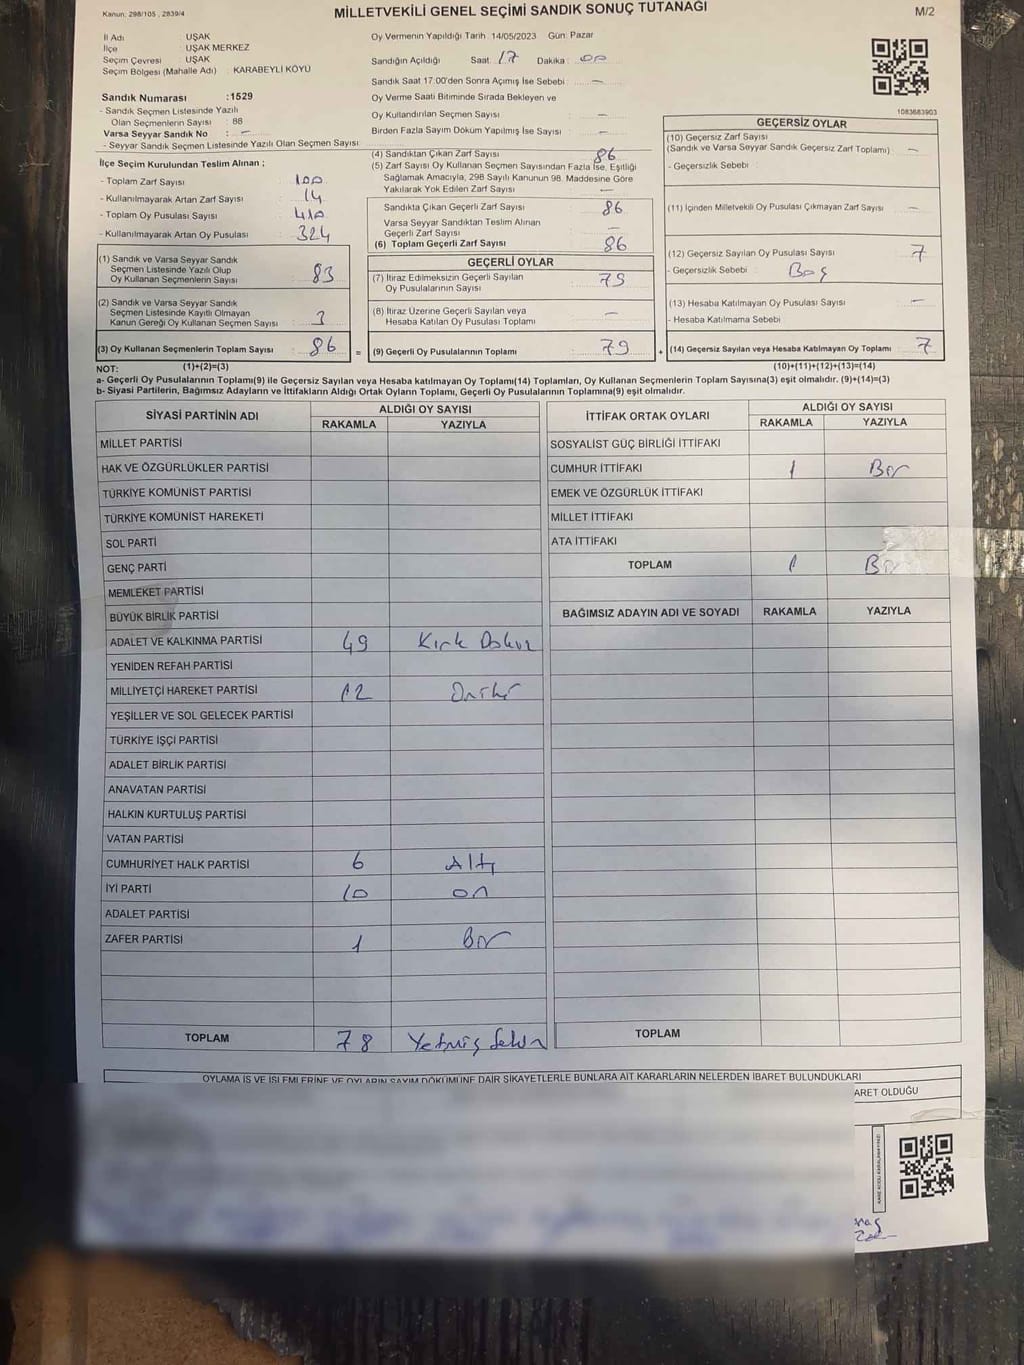 Kanun: 298/105 , 2839/4
MİLLETVEKİLİ GENEL SEÇİMİ SANDIK SONUÇ TUTANAĞI
M/2
İl Adı : UŞAK
İlçe : UŞAK MERKEZ
Seçim Çevresi : UŞAK
Seçim Bölgesi (Mahalle Adı) : KARABEYLİ KÖYÜ
Sandık Numarası :1529
- Sandık Seçmen Listesinde Yazılı
Olan Seçmenlerin Sayısı : 88
Varsa Seyyar Sandık No : -
- Seyyar Sandık Seçmen Listesinde Yazılı Olan Seçmen Sayısı
İlçe Seçim Kurulundan Teslim Alınan ;
- Toplam Zarf Sayısı : 100
- Kullanılmayarak Artan Zarf Sayısı : 14
- Toplam Oy Pusulası Sayısı : 410
- Kullanılmayarak Artan Oy Pusulası : 324
(1) Sandık ve Varsa Seyyar Sandık
Seçmen Listesinde Yazılı Olup
Oy Kullanan Seçmenlerin Sayısı : 83
(2) Sandık ve Varsa Seyyar Sandık
Seçmen Listesinde Kayıtlı Olmayan
Kanun Gereği Oy Kullanan Seçmen Sayısı : 3
(3) Oy Kullanan Seçmenlerin Toplam Sayısı : 86 =
Oy Vermenin Yapıldığı Tarih :14/05/2023 Gün: Pazar
Sandığın Açıldığı Saat: 17 Dakika: 00
Sandık Saat 17:00'den Sonra Açımış İse Sebebi : -
Oy Verme Saati Bitiminde Sırada Bekleyen ve
Oy Kullandırılan Seçmen Sayısı : -
Birden Fazla Sayım Döküm Yapılmış İse Sayısı : -
(4) Sandıktan Çıkan Zarf Sayısı : 86
(5) Zarf Sayısı Oy Kullanan Seçmen Sayısından Fazla İse, Eşitliği
Sağlamak Amacıyla, 298 Sayılı Kanunun 98. Maddesine Göre
Yakılarak Yok Edilen Zarf Sayısı : -
Sandıkta Çıkan Geçerli Zarf Sayısı : 86
Varsa Seyyar Sandıktan Teslim Alınan
Geçerli Zarf Sayısı : -
(6) Toplam Geçerli Zarf Sayısı : 86
GEÇERLİ OYLAR
(7) İtiraz Edilmeksizin Geçerli Sayılan
Oy Pusulalarının Sayısı : 79
(8) İtiraz Üzerine Geçerli Sayılan veya
Hesaba Katılan Oy Pusulası Toplamı : -
(9) Geçerli Oy Pusulalarının Toplamı : 79 +
1083683903
GEÇERSİZ OYLAR
(10) Geçersiz Zarf Sayısı
(Sandık ve Varsa Seyyar Sandık Geçersiz Zarf Toplamı) : -
- Geçersizlik Sebebi :
(11) İçinden Milletvekili Oy Pusulası Çıkmayan Zarf Sayısı : -
(12) Geçersiz Sayılan Oy Pusulası Sayısı : 7
- Geçersizlik Sebebi : Boş
(13) Hesaba Katılmayan Oy Pusulası Sayısı : -
- Hesaba Katılmama Sebebi
(14) Geçersiz Sayılan veya Hesaba Katılmayan Oy Toplamı : 7
NOT: (1)+(2)=(3) (10)+(11)+(12)+(13)=(14)
a- Geçerli Oy Pusulalarının Toplamı(9) ile Geçersiz Sayılan veya Hesaba katılmayan Oy Toplamı(14) Toplamları, Oy Kullanan Seçmenlerin Toplam Sayısına(3) eşit olmalıdır. (9)+(14)=(3)
b- Siyasi Partilerin, Bağımsız Adayların ve İttifakların Aldığı Ortak Oyların Toplamı, Geçerli Oy Pusulalarının Toplamına(9) eşit olmalıdır.
SİYASİ PARTİNİN ADI ALDIĞI OY SAYISI
RAKAMLA YAZIYLA
MİLLET PARTİSİ
HAK VE ÖZGÜRLÜKLER PARTİSİ
TÜRKİYE KOMÜNİST PARTİSİ
TÜRKİYE KOMÜNİST HAREKETİ
SOL PARTİ
GENÇ PARTİ
MEMLEKET PARTİSİ
BÜYÜK BİRLİK PARTİSİ
ADALET VE KALKINMA PARTİSİ 49 Kırk Dokuz
YENİDEN REFAH PARTİSİ
MİLLİYETÇİ HAREKET PARTİSİ 12 Oniki
YEŞİLLER VE SOL GELECEK PARTİSİ
TÜRKİYE İŞÇİ PARTİSİ
ADALET BİRLİK PARTİSİ
ANAVATAN PARTİSİ
HALKIN KURTULUŞ PARTİSİ
VATAN PARTİSİ
CUMHURİYET HALK PARTİSİ 6 Altı
İYİ PARTİ 10 on
ADALET PARTİSİ
ZAFER PARTİSİ 1 Bir
TOPLAM 78 Yetmiş Sekiz
İTTİFAK ORTAK OYLARI ALDIĞI OY SAYISI
RAKAMLA YAZIYLA
SOSYALİST GÜÇ BİRLİĞİ İTTİFAKI
CUMHUR İTTİFAKI 1 Bir
EMEK VE ÖZGÜRLÜK İTTİFAKI
MİLLET İTTİFAKI
ATA İTTİFAKI
TOPLAM 1 Bir
BAĞIMSIZ ADAYIN ADI VE SOYADI RAKAMLA YAZIYLA
TOPLAM
OYLAMA İŞ VE İŞLEMLERİNE VE OYLARIN SAYIM DÖKÜMÜNE DAİR ŞİKAYETLERLE BUNLARA AİT KARARLARIN NELERDEN İBARET BULUNDUKLARI
ARET OLDUĞU